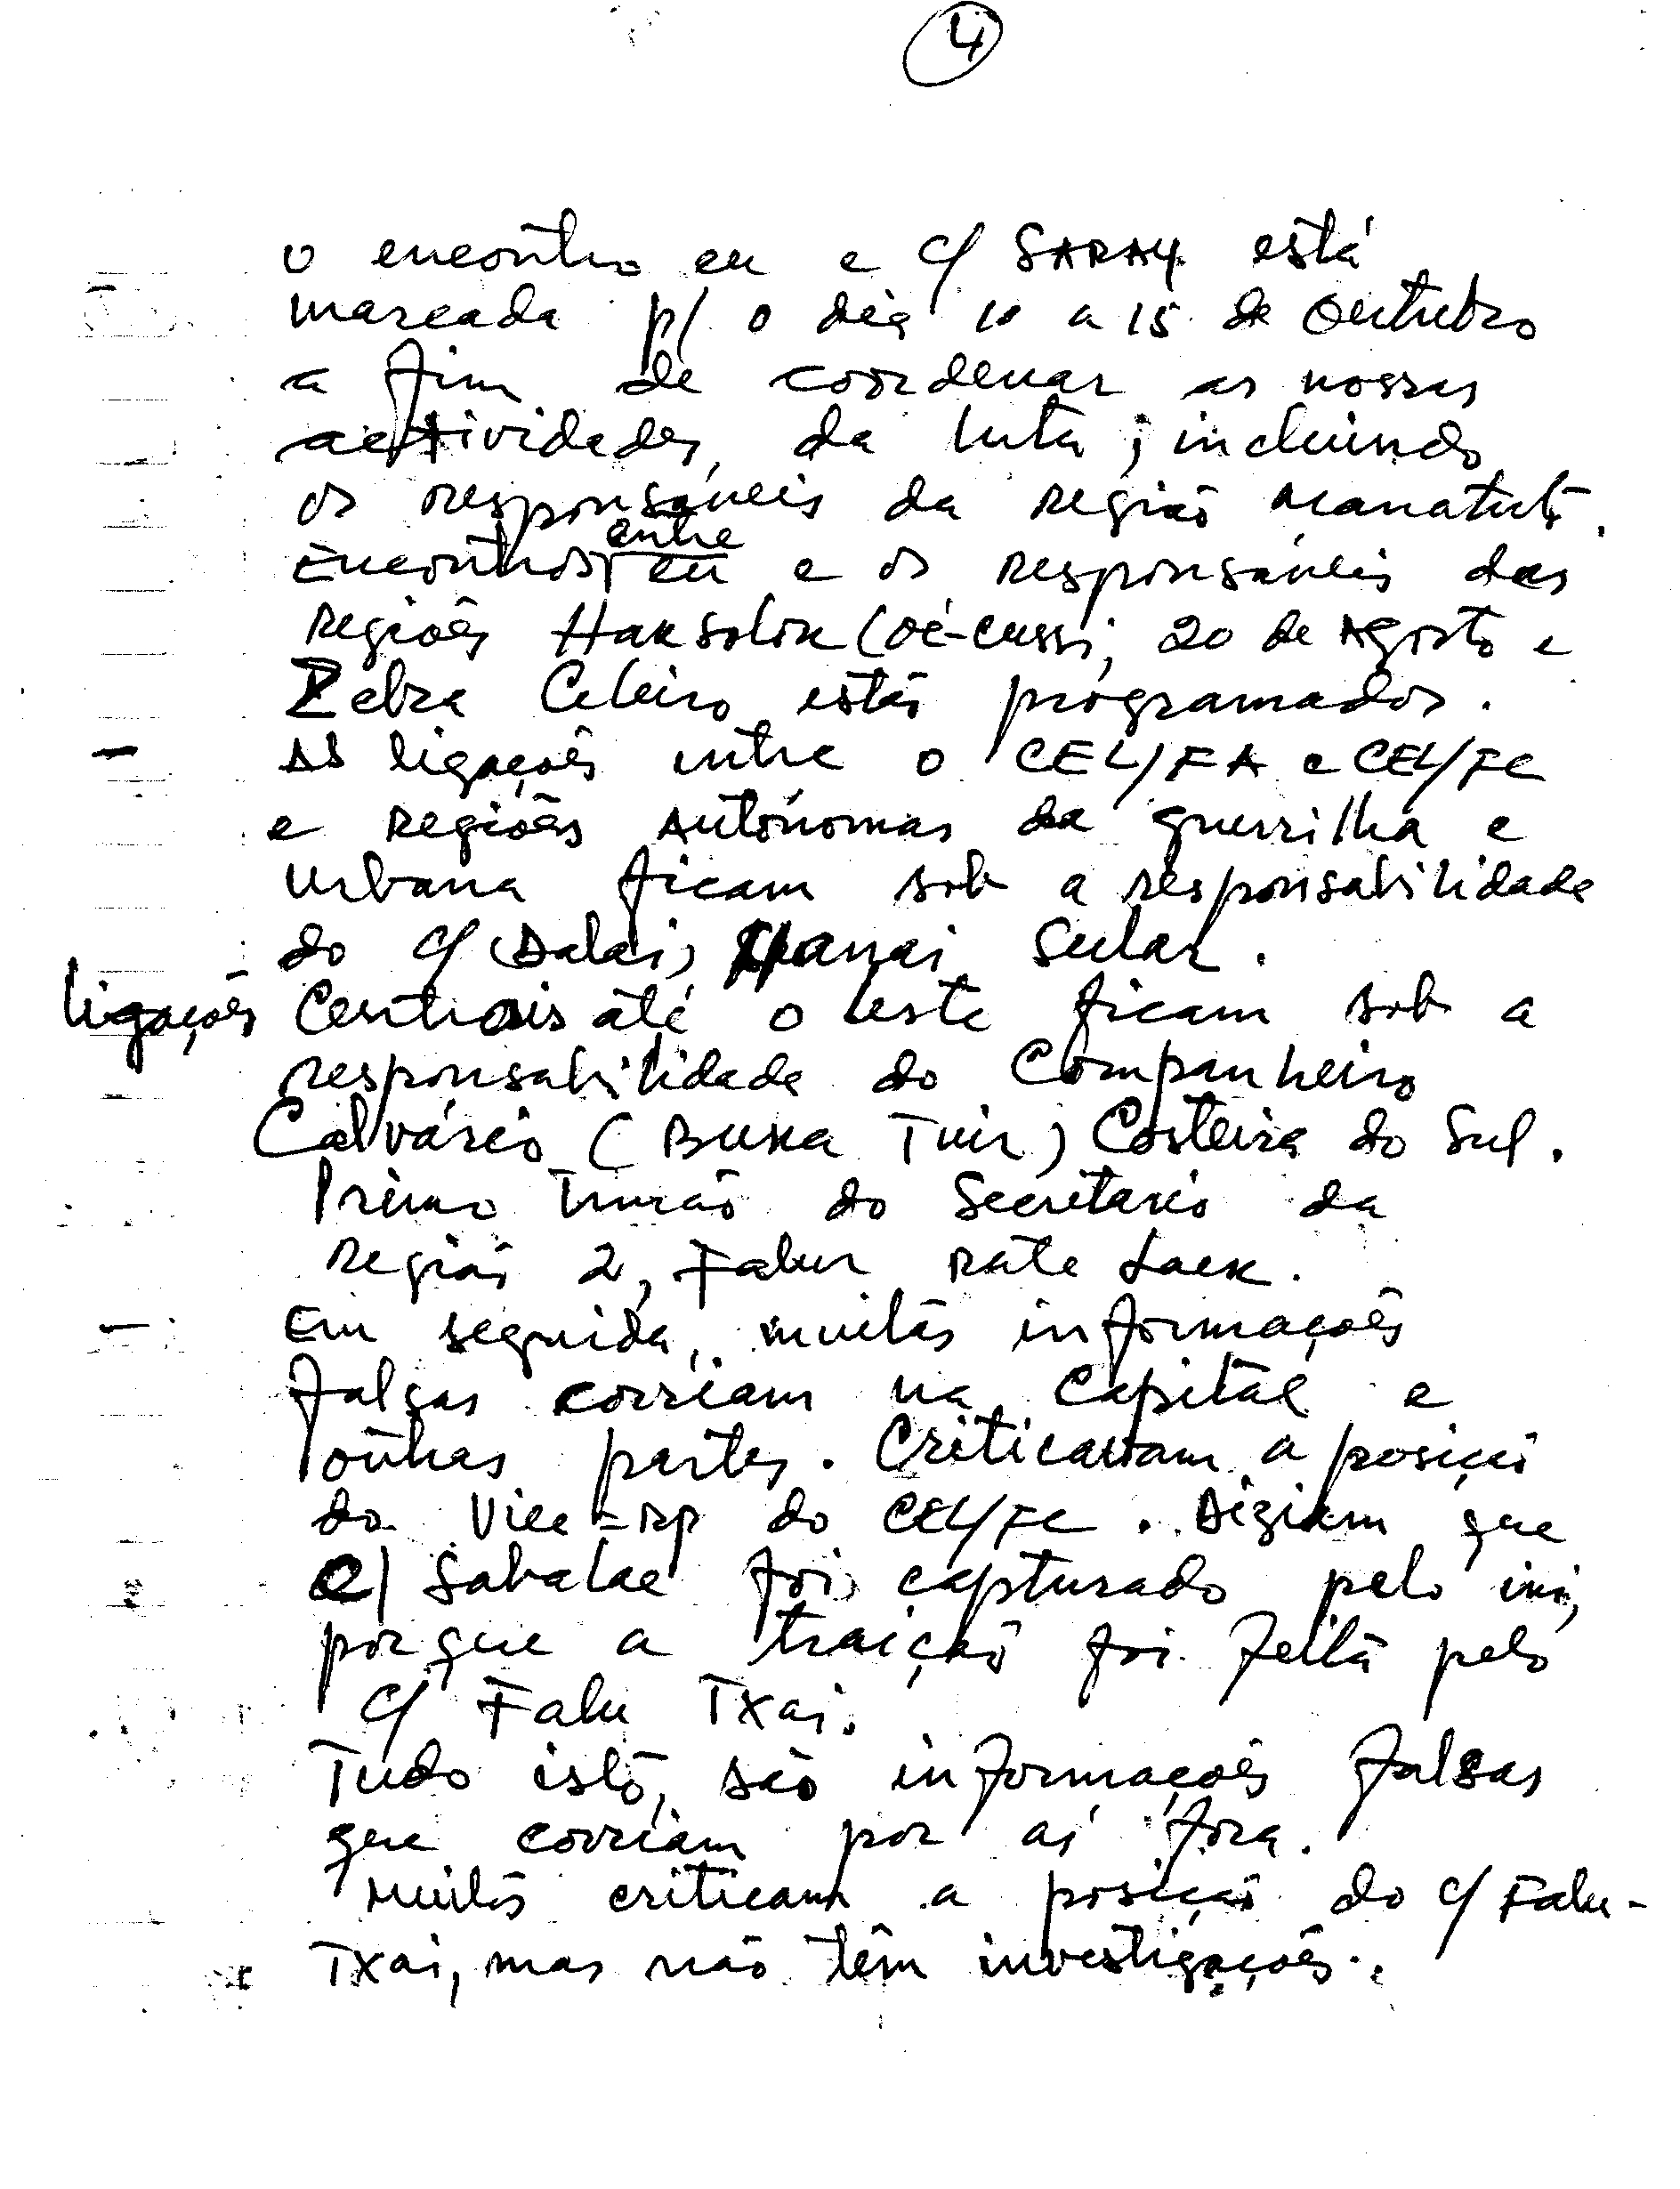 4
o encontro eu e c/ SARAY está
marcada p/ o dia 10 a 15 de Outubro
a fim de coordenar as nossas
actividades, da luta, incluindo
os responsáveis da região Manatuto.
entre
Encontros eu e os responsáveis das
Regiões Haksolok (Oé-cussi, 20 de Agosto e
Zebra Celeiro estão programados.
- As ligações entre o CEL/FA e CEL/FC
e Regiões Autónomas da guerrilha e
Urbana ficam sob a responsabilidade
do c/ (Dalai) Sular.
ligações Centrais até o leste ficam sob a
responsabilidade do Companheiro
Calvário (Buka Tuir) Costeira do Sul.
Primo Irmão do Secretário da
Região 2, Falur Rate Laek.
- Em seguida, muitas informações
falsas corriam na capital e
outras partes. Criticavam a posição
do Vice-RP do CEL/FC. Diziam que
c/ Sabalae foi capturado pelo ini,
porque a traição foi feita pelo
c/ Falu Txai.
Tudo isto, são informações falsas
que corriam por aí fora.
Muitos criticam a posição do c/ Falu-
Txai, mas não têm investigações.